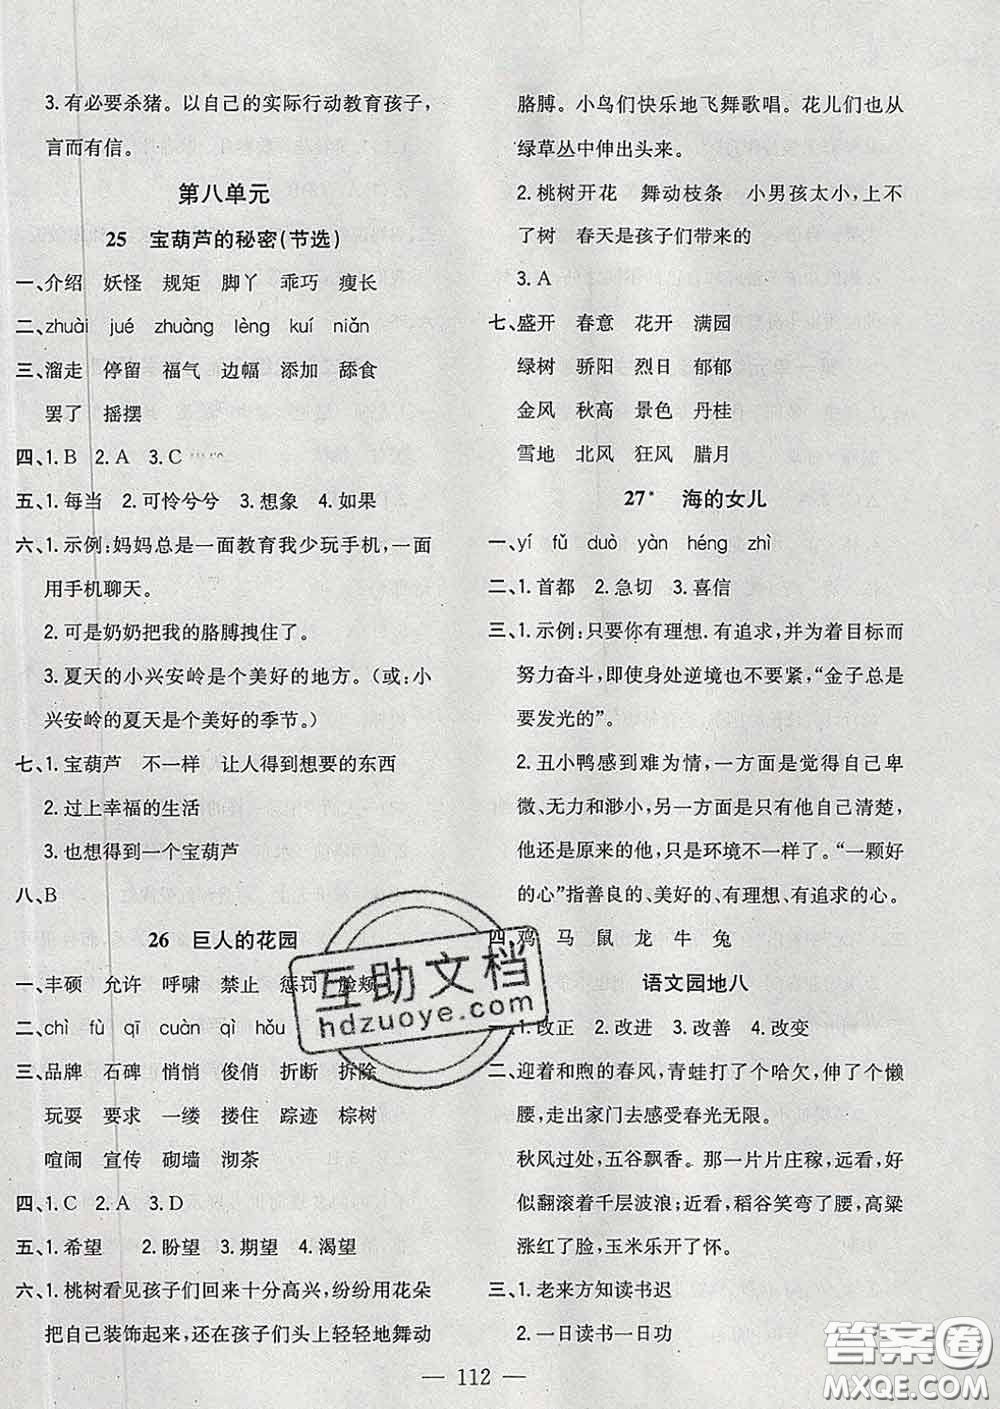 3. 有必要杀猪。以自己的实际行动教育孩子，
言而有信。
第八单元
25 宝葫芦的秘密(节选)
一、介绍 妖怪 规矩 脚丫 乖巧 瘦长
二、zhuài jué zhuàng lèng kuí niǎn
三、溜走 停留 福气 边幅 添加 舔食
罢了 摇摆
四、1. B 2. A 3. C
五、1. 每当 2. 可怜兮兮 3. 想象 4. 如果
六、1. 示例：妈妈总是一面教育我少玩手机，一面
用手机聊天。
2. 可是奶奶把我的胳膊拽住了。
3. 夏天的小兴安岭是个美好的地方。(或：小
兴安岭的夏天是个美好的季节。)
七、1. 宝葫芦 不一样 让人得到想要的东西
2. 过上幸福的生活
3. 也想得到一个宝葫芦
八、B
26 巨人的花园
一、丰硕 允许 呼啸 禁止 惩罚 脸颊
二、chì fù qī cuàn qì hǒu
三、品牌 石碑 悄悄 俊俏 折断 拆除
玩耍 要求 一缕 搂住 踪迹 棕树
喧闹 宣传 砌墙 沏茶
四、1. C 2. A 3. D
五、1. 希望 2. 盼望 3. 期望 4. 渴望
六、1. 桃树看见孩子们回来十分高兴，纷纷用花朵
把自己装饰起来，还在孩子们头上轻轻地舞动
胳膊。小鸟们快乐地飞舞歌唱。花儿们也从
绿草丛中伸出头来。
2. 桃树开花 舞动枝条 小男孩太小，上不
了树 春天是孩子们带来的
3. A
七、盛开 春意 花开 满园
绿树 骄阳 烈日 郁郁
金风 秋高 景色 丹桂
雪地 北风 狂风 腊月
27* 海的女儿
一、yí fǔ duò yàn héng zhì
二、1. 首都 2. 急切 3. 喜信
三、1. 示例：只要你有理想.有追求，并为着目标而
努力奋斗，即使身处逆境也不要紧，“金子总是
要发光的”。
2. 丑小鸭感到难为情，一方面是觉得自己卑
微、无力和渺小，另一方面是只有他自己清楚，
他还是原来的他，只是环境不一样了。“一颗好
的心”指善良的、美好的、有理想、有追求的心。
四、鸡 马 鼠 龙 牛 兔
语文园地八
一、1. 改正 2. 改进 3. 改善 4. 改变
二、迎着和煦的春风，青蛙打了个哈欠，伸了个懒
腰，走出家门去感受春光无限。
秋风过处，五谷飘香。那一片片庄稼，远看，好
似翻滚着千层波浪；近看，稻谷笑弯了腰，高粱
涨红了脸，玉米乐开了怀。
三、1. 老来方知读书迟
2. 一日读书一日功
— 112 —
互助文档
hdzuoye.com
答案圈
MXQE.COM